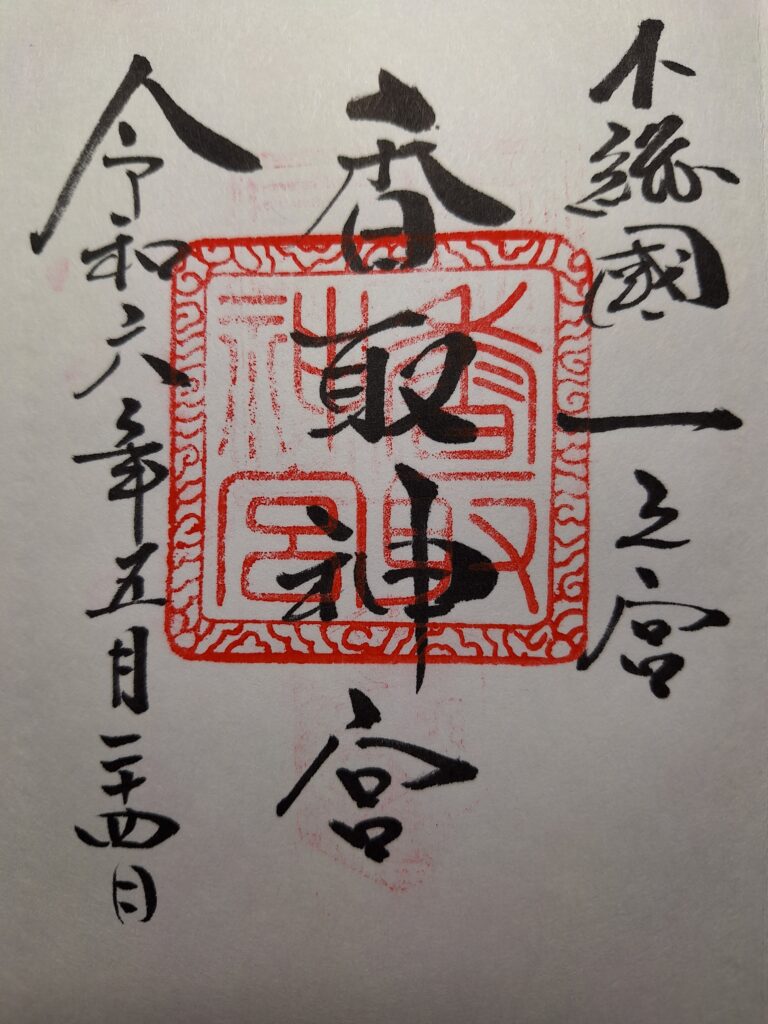 下総國一之宮
香取神宮
香取神宮
令和六年五月二十四日